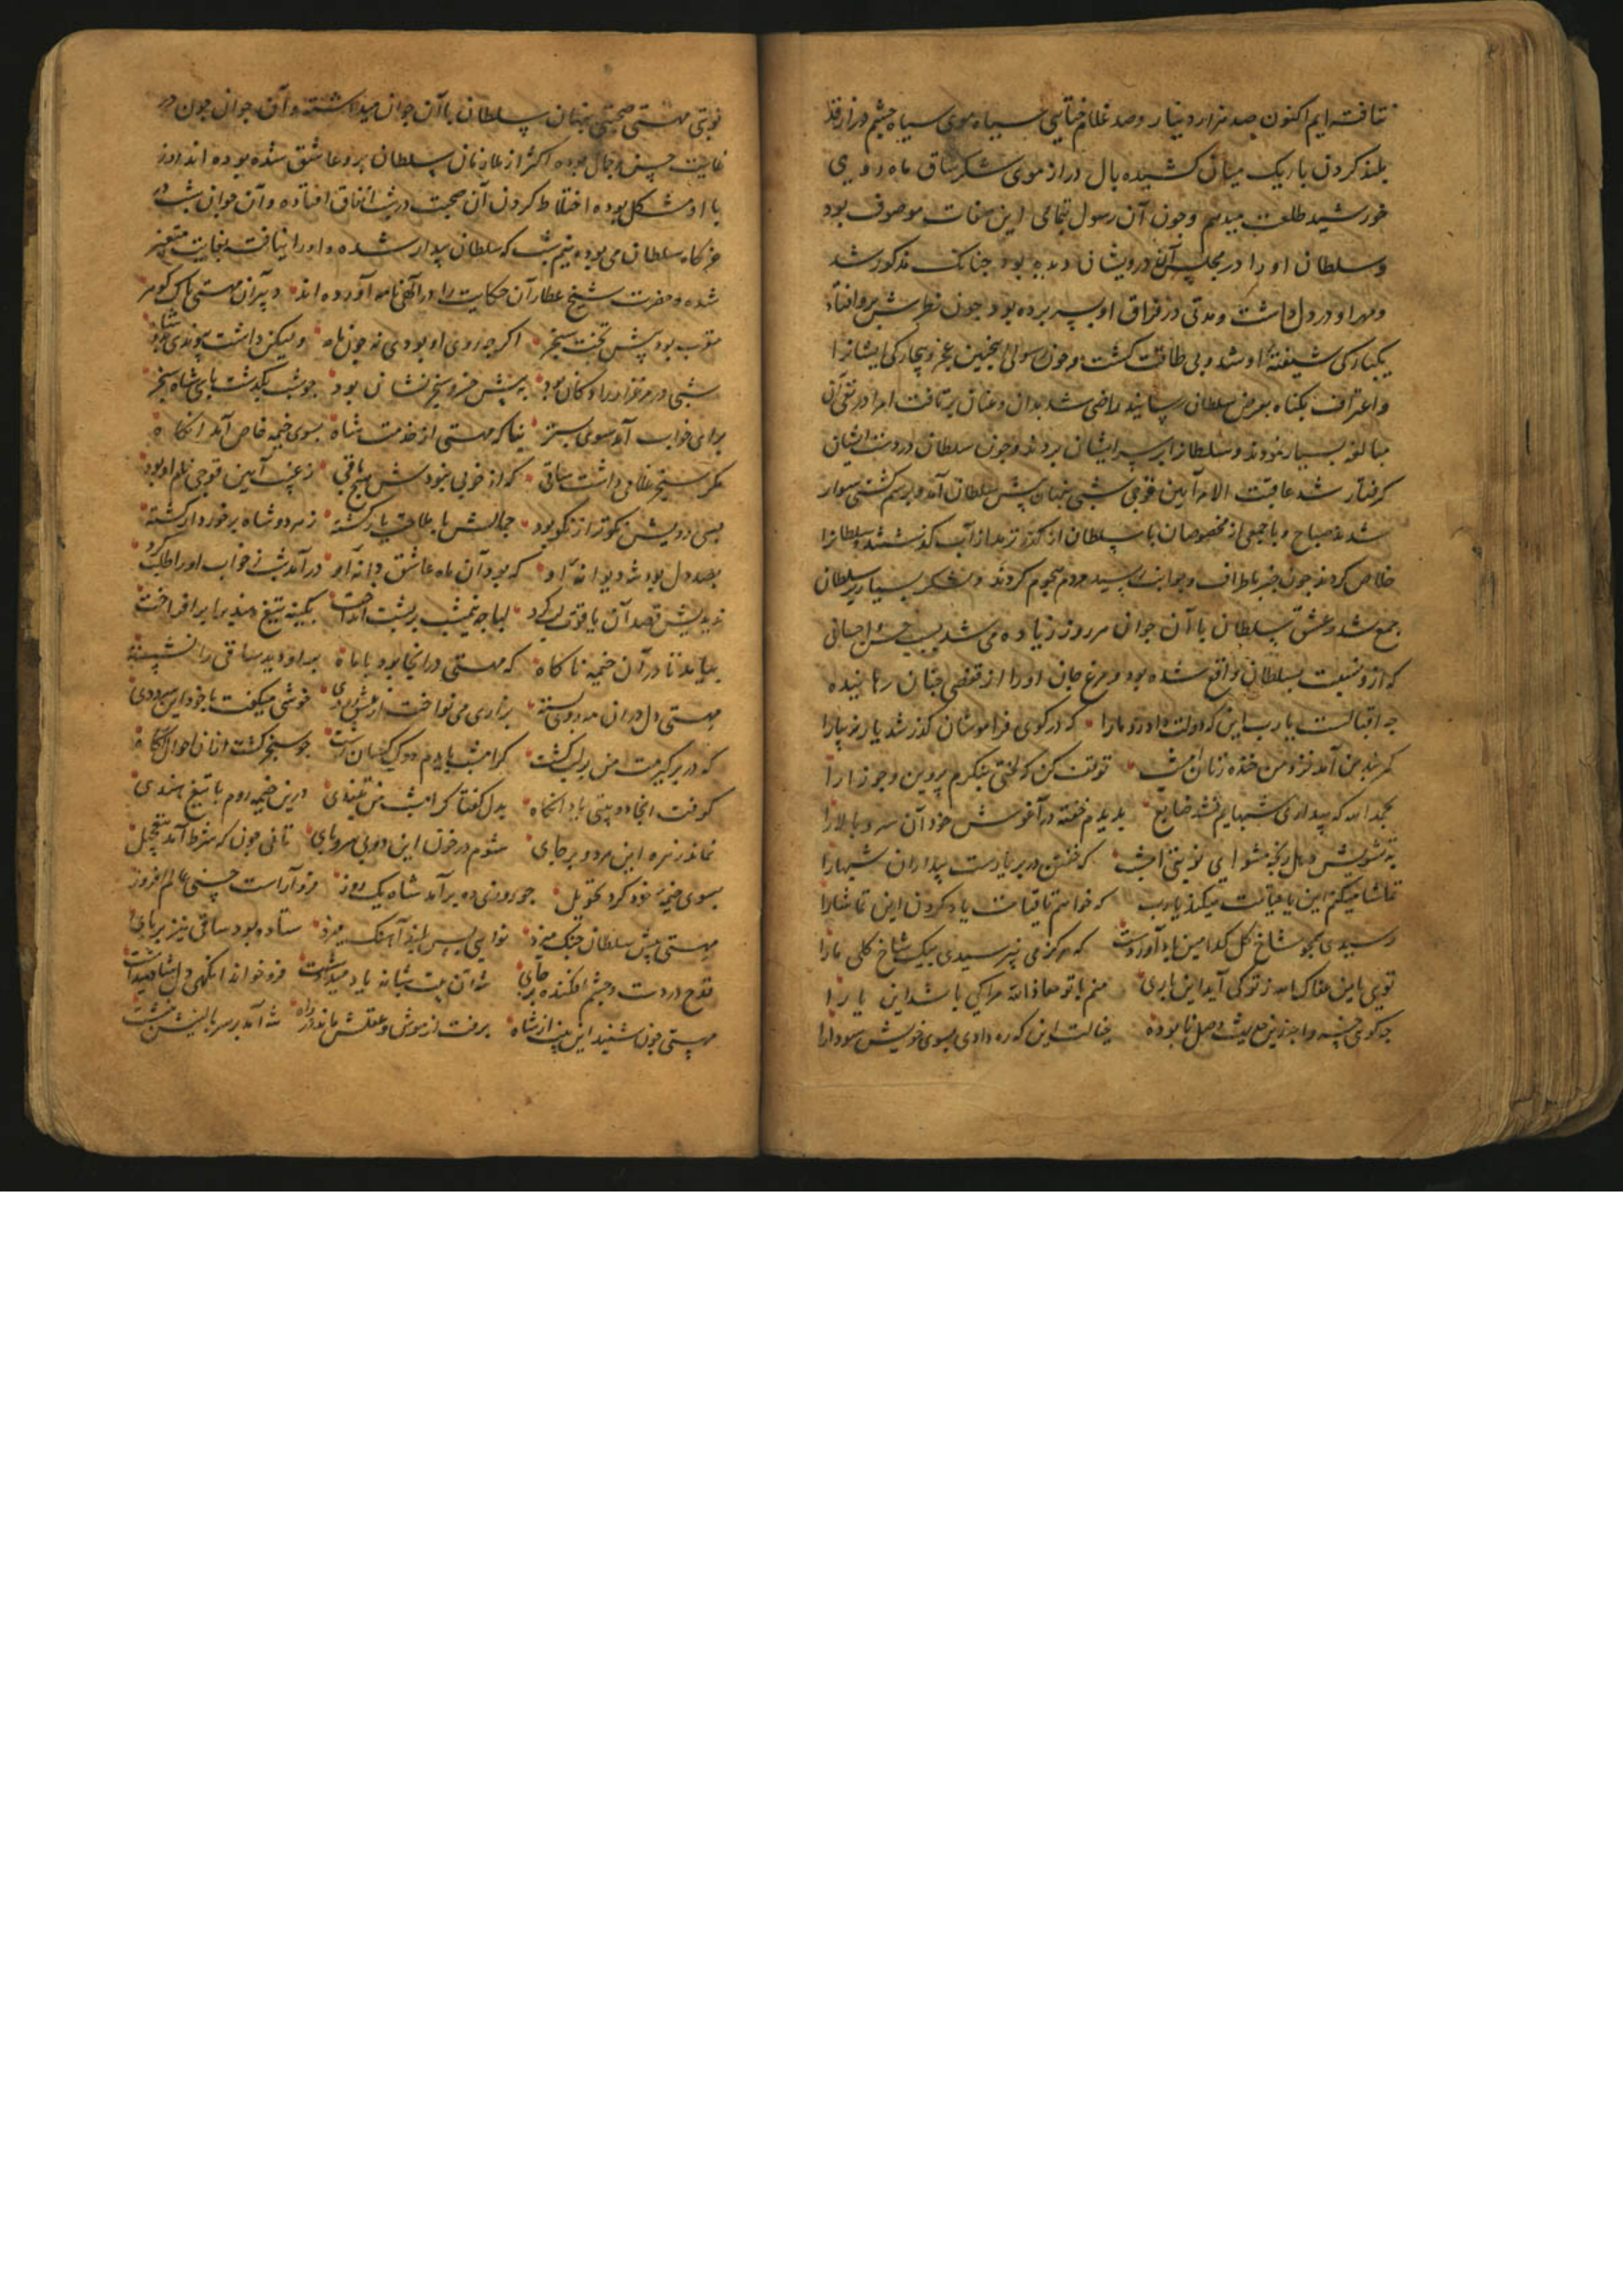 نتافته ایم اکنون صد هزار دینار و صد غلام ختایی سیاه موی سیاه چشم دراز قد
بلند کردن باریک میان کشیده بال دراز موی شکر ساق ماه روی
خورشید طلعت میدیم و چون آن رسول بتمامی این صفات موصوف بود
و سلطان او را در مجلس آن درویشان دیده بود چنانک مذکور شد
و مهر او در دل داشت و مدتی در فراق او بسر برده بود چون نظرش برو افتاد
یکبارکی شیفتهٔ او شد و بی طاقت کشت و چون رسولی بچنین عجز و بیچارکی ایشانرا
و اعتراف بکناه بعرض سلطان رسانید راضی شد بدان و عنان برتافت امرا در نفی آن
مبالغه بسیار نمودند و سلطانرا بر سر ایشان بردند و چون سلطان در دست ایشان
کرفتار شد عاقبت الامر آیین قوجی شبی پنهان پیش سلطان آمد و بر هم کشتی سوار
شدند صباح و با جمعی از مخصوصان با سلطان از کذر ترمد از آب کذشتند و سلطانرا
خلاص کردند چون خبر باطراف و جوانب رسید مردم هجوم کردند و لشکر بسیار بر سلطان
جمع شد و عشق سلطان با آن جوان هر روز زیاده می شد بسبب حسن احسانی
که ازو نسبت بسلطان واقع شده بود و مرغ جان او را از قفص چنان رهانیده
چه اقبالست یا رب این که دولت داد رو ما را که در کوی فراموشان کذر شد یار زیبا را
کمر شد من آمد نزد من خنده زنان امشب توقف کن که لختی بنکرم پروین و جوزا را
بحمد الله که بیداری شبهایم نشد ضایع بدیدم خفته در آغوش خود آن سرو بالا را
به تشویش دهل رنجه مشو ای نوبتی امشب که خفتن در بر یارست بیداران شبها را
تماشا میکنم این یا قیامت میکند یا رب که خواهم تا قیامت یاد کردن این تماشا را
رسیدی همچو شاخ کل کدامین باد آوردت که هرکز می نپرسیدی بیک شاخ کلی ما را
تویی یا من عفاک الله ز تو کی آید این یاری منم با تو معاذ الله مرا کی باشد این یارا
چه کوی خسروا جز این حدیث وصل نابوده خیالست این که ره دادی بسوی خویش سودا را
نوبتی مهستی صحبتی پنهان سلطان با آن جوان میداشته و آن جوان چون در
غایت حسن و جمال بوده اکثر از ملازمان سلطان برو عاشق شده بوده اند و روز
با او مشکل بوده اختلاط کردن آن صحبت در شب اتفاق افتاده و آن جوان شب در
خرکاه سلطان می بوده نیم شب که سلطان بیدار شده و او را نیافته بغایت متغیر
شده و حضرت شیخ عطار آن حکایت را در الهی نامه آورده اند دبیر آن مهستی پاک کوهر
مقرب بود پیش تخت سنجر اکر چه روی او بودی نه چون ماه ولیکن داشت پیوندی بدو شاه
شبی در مرغزار رادکان بود به پیش خسرو سنجر نشان بود چو شب بکذشت پاسی شاه سنجر
برای خواب آمد سوی بستر بناکه مهستی از خدمت شاه بسوی خیمه خاص آمد آنکاه
مکر سنجر غلامی داشت ساقی که از خوبی نبودش هیچ باقی
بسی در ویش نکوتر از نکو بود جمالش با ملاحت یار کشته ز هر دو شاه برخوردار کشته
بصد دل بود شه دیوانهٔ او که بود آن ماه عاشق دانهٔ او در آمد شب ز خواب او را طلب کرد
ندیدش قصد آن یاقوت لب کرد لباچه نیمشب بر پشت انداخت بکینه تیغ هندی را برافراخت
بیامد تا در آن خیمه ناکاه که مهستی در آنجا بود با ماه بر او دید ساقی را نشسته
مهستی دل در آن مه روی بسته بزاری می نواخت از عشق رودی خوشی میکفت با خود این سرودی
که در بر کیرمت من بر لب کشت چو سنجر کشت از آن احوال آکاه
کرفت آنجا دو بیتی یاد آنکاه بدل کفتا کر امشب من بتندی درین خیمه روم با تیغ هندی
نماند زهره این هر دو بر جای شوم در خون این دو بی سر و پای تانی چون که شرط آمد نه تعجیل
بسوی خیمهٔ خود کرد تحویل چو روزی ده برآمد شاه یک روز فرو آراست جشنی عالم افروز
مهستی پیش سلطان چنک میزد نوایی بس بلند آهنک میزد ستاده بود ساقی نیز بر پای
قدح در دست و چشم افکنده بر جای شه آن بیت شبانه یاد میداشت فرو خواند آنکهی دل شاد میداشت
مهستی چون شنید این بیت از شاه برفت از هوش و عقلش ماند در راه شه آمد بر سر بالینش بنشست